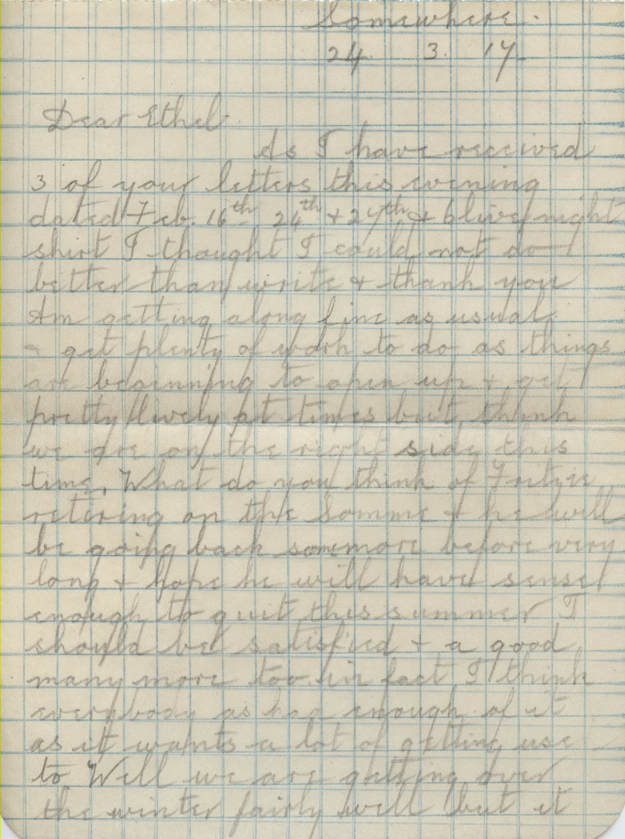 Somewhere.
24 3. 17
Dear Ethel
As I have received
3 of your letters this evening
dated Feb. 16th 24th + 27th + night
shirt I thought I could not do
better than write + thank you
Am getting along fine as usual
+ get plenty of work to do as things
are beginning to open up + get
pretty lively at times but think
we are on the right side this
time. What do you think of Fritzie
retering on the Somme + he will
be going back some more before very
long + hope he will have sense
enough to quit this summer I
should be satisfied + a good
many more too in fact I think
everybody as had enough of it
as it wants a lot of getting use
to Well we are getting over
the winter fairly well but it